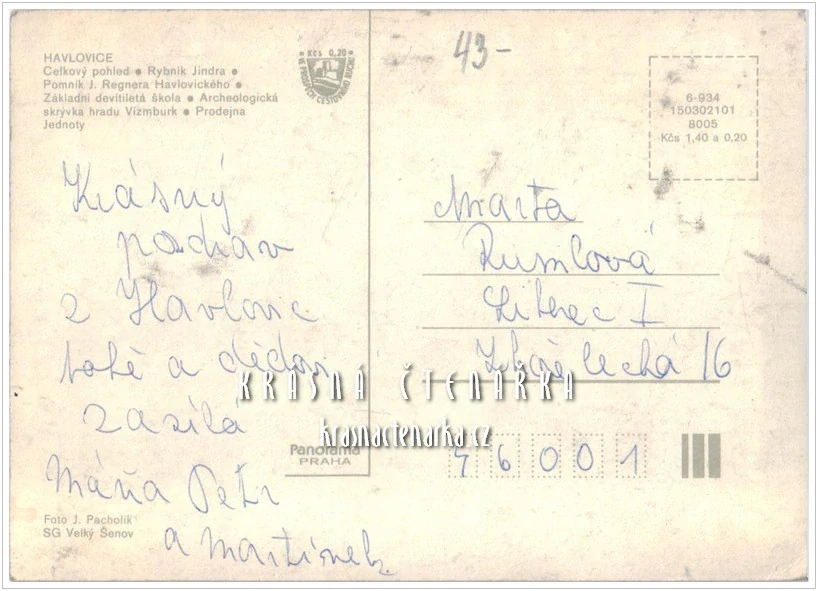 HAVLOVICE
Celkový pohled • Rybník Jindra •
Pomník J. Regnera Havlovického •
Základní devítiletá škola • Archeologická
skrývka hradu Vízmburk • Prodejna
Jednoty
Kčs 0,20
43-
6-934
150302101
8005
Kčs 1,40 a 0,20
Krásný
pozdrav
z Havlovic
tobě a dědovi
zasílá
Máňa Petr
a Martinek
Marta
Rumlová
Liberec I
16
KRÁSNÁ ČTENÁŘKA
krasnactenarka.cz
46001
Panorama
PRAHA
Foto J. Pacholík
SG Velký Šenov